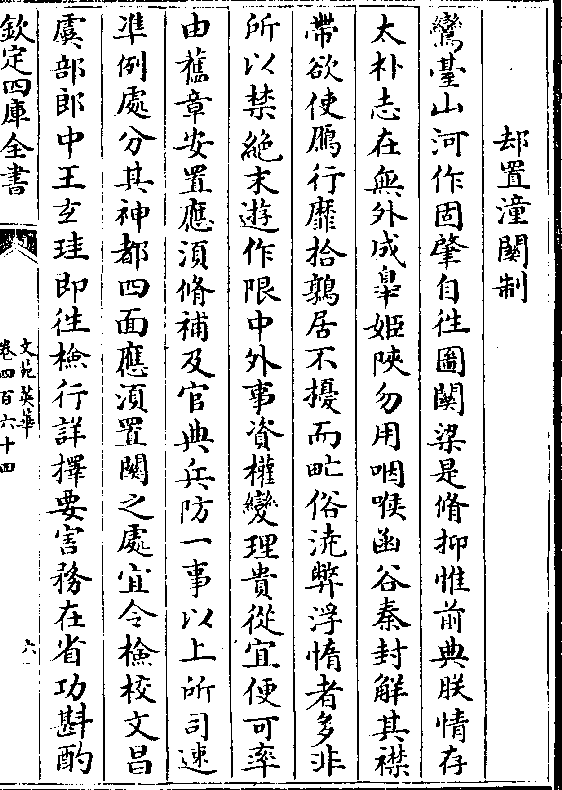 却置潼關制
鸞臺山河作固肇自徃圖關梁是脩抑惟前典朕情存
太朴志在無外成臯姬陜勿用咽喉函谷秦封解其襟
帶欲使鴈行靡拾鶉居不擾而甿俗流弊浮惰者多非
所以禁絶末遊作限中外事資權變理貴從宜便可率
由舊章安置應須脩補及官典兵防一事以上所司速
準例處分其神都四面應須置關之處宜令檢校文昌
虞部郎中王玄珪即徃檢行詳擇要害務在省功斟酌
欽定四庫全書
文苑英華
卷四百六十四
六